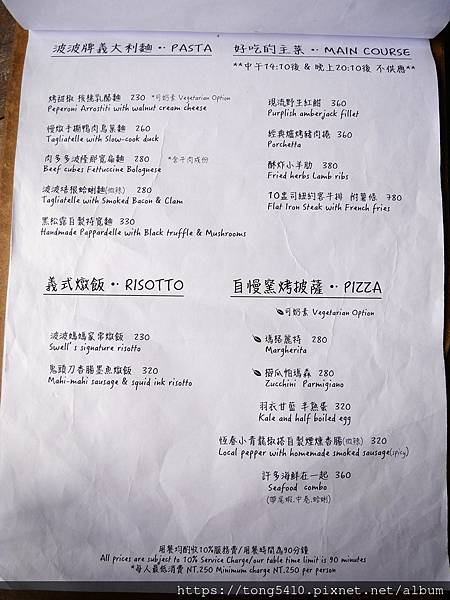 波波牌義大利麵 •• PASTA
烤甜椒 核桃乳酪麵 230 *可奶素 Vegetarian Option
Peperoni Arrostiti with walnut cream cheese
慢燉手撕鴨肉鳥巢麵 260
Tagliatelle with Slow-cook duck
肉多多波隆那寬扁麵 280 *含牛肉成份
Beef cubes Fettuccine Bolognese
波波培根蛤蜊麵(微辣) 280
Tagliatelle with Smoked Bacon & Clam
黑松露自製特寬麵 330
Handmade Pappardelle with Black truffle & Mushrooms
好吃的主菜 •• MAIN COURSE
**中午14:10後 & 晚上20:10後 不供應**
現流野生紅魽 360
Purplish amberjack fillet
經典爐烤豬肉捲 360
Porchetta
酥炸小羊肋 380
Fried herbs Lamb ribs
10盎司紐約客牛排 附薯條 780
Flat Iron Steak with French fries
義式燉飯 •• RISOTTO
波波媽媽家常燉飯 230
Swell's signature risotto
鬼頭刀香腸墨魚燉飯 320
Mahi-mahi sausage & squid ink risotto
自慢窯烤披薩 •• PIZZA
可奶素 Vegetarian Option
瑪格麗特 280
Margherita
櫛瓜帕瑪森 280
Zucchini Parmigiano
羽衣甘藍 半熟蛋 320
Kale and half boiled egg
恆春小青龍椒搭自製煙燻香腸(微辣) 320
Local pepper with homemade smoked sausage(spicy)
許多海鮮在一起 360
Seafood combo
(帶尾蝦.中卷.蛤蜊)
用餐均酌收10%服務費/用餐時間為90分鐘
All prices are subject to 10% Service Charge/our table time limit is 90 minutes
*每人最低消費 NT.250 Minimum charge NT.250 per person
https://tong5410.pixnet.net/album